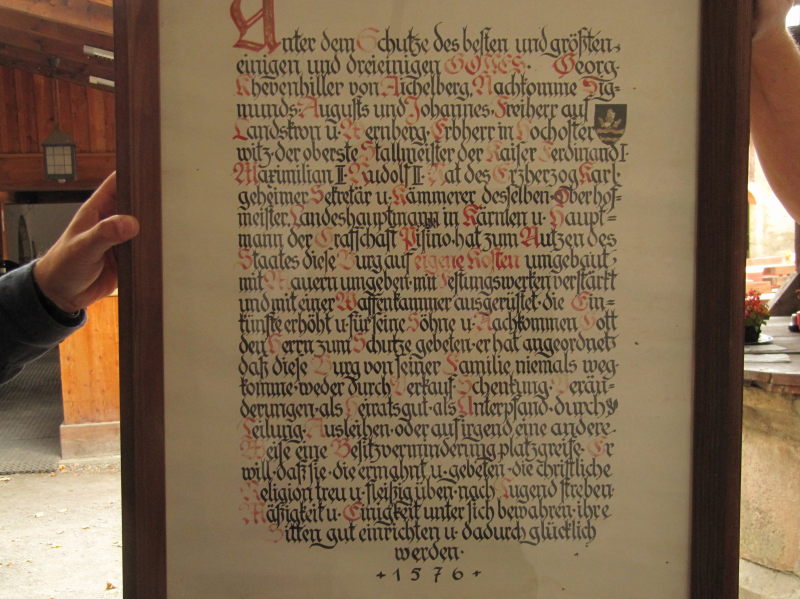 Unter dem Schutze des besten und größten,
einigen und dreieinigen GOTTES · Georg
Khevenhiller von Aichelberg, Nachkomme Sig-
munds, Augusts und Johannes, Freiherr auf
Landskron u. Wernberg, Erbherr in Hochoster
witz, der oberste Stallmeister der Kaiser Ferdinand I.
Maximilian II. Rudolf II. Rat des Erzherzog Karl,
geheimer Sekretär u. Kämmerer desselben, Oberhof-
meister, Landeshauptmann in Kärnten u. Haupt-
mann der Graffschaft Pisino, hat zum Nutzen des
Staates diese Burg auf eigene Kosten umgebaut,
mit Mauern umgeben, mit Festungswerken verstärkt
und mit einer Waffenkammer ausgerüstet, die Ein-
künfte erhöht u. für seine Söhne u. Nachkommen Gott
den Herrn zum Schutze gebeten, er hat angeordnet,
daß diese Burg von seiner Familie niemals weg-
komme, weder durch Verkauf, Schenkung, Verän-
derungen, als Heiratsgut, als Unterpfand, durch
Teilung, Ausleihen, oder auf irgend eine andere
Weise eine Besitzverminderung platzgreife. Er
will, daß sie, die ermahnt u. gebeten, die christliche
Religion treu u. fleißig üben, nach Tugend streben,
Mäßigkeit u. Einigkeit unter sich bewahren, ihre
Sitten gut einrichten u. dadurch glücklich
werden.
+ 1576 +